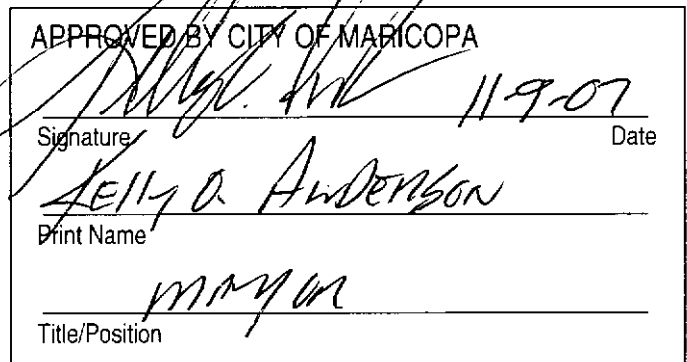 APPROVED BY CITY OF MARICOPA
11-9-07
Signature Date
Kelly O. Anderson
Print Name
mayor
Title/Position